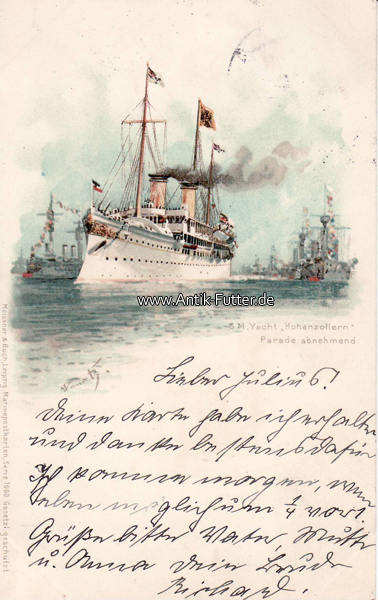 www.Antik-Futter.de
S.M. Yacht „Hohenzollern“
Parade abnehmend
Meissner & Buch, Leipzig Marinepostkarten, Serie 1000 Gesetzl. geschützt
Lieber Julius!
Deine Karte habe ich erhalten
und danke bestens dafür
Ich komme morgen, wen
eben möglich um ¼ vor 1
Grüße bitte Vater, Mutter
u. Anna Dein Bruder
Richard.